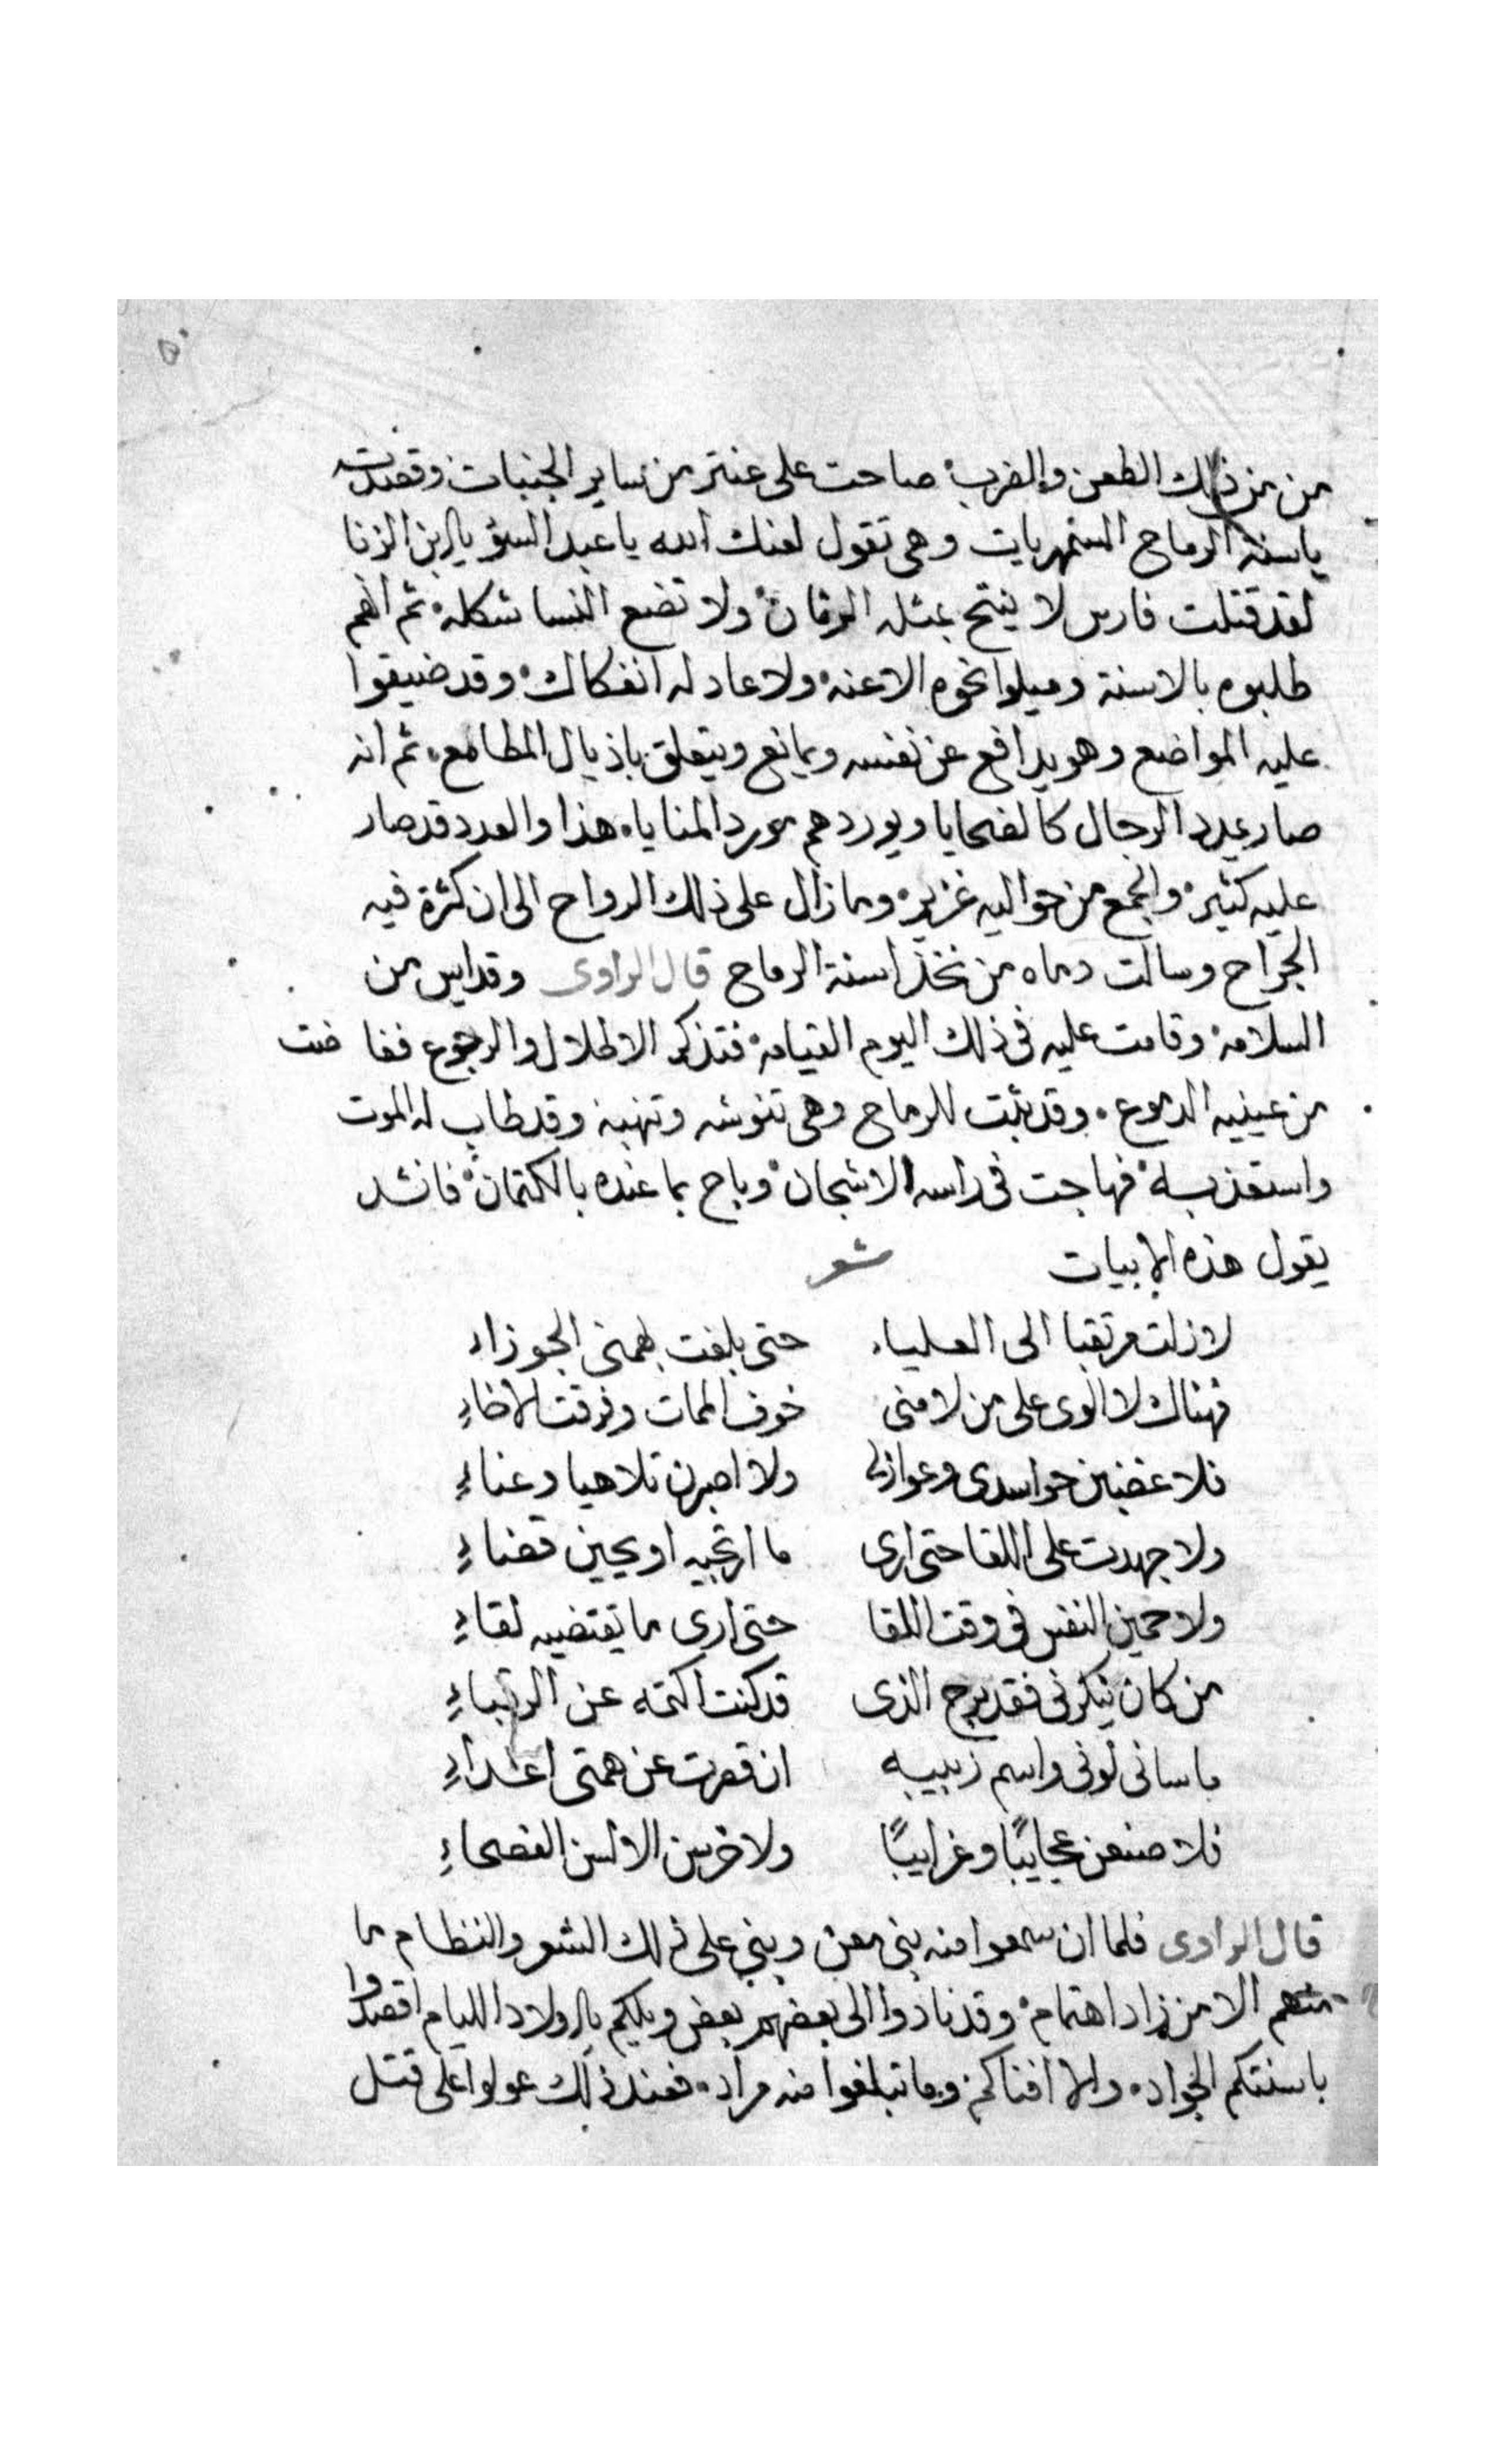 من من ذلك الطعن والضرب صاحت على عنتر من ساير الجنبات وقصدته
باسنة الرماح السمهريات وهى تقول لعنك الله يا عبد السؤ يا ابن الزنا
لقد قتلت فارس لا ينتج بمثله الزمان ولا تضع النسا شكله ثم انهم
طلبوه بالاسنة وميلوا نحوه الاعنه ولا عاد له انفكاك وقد ضيقوا
عليه المواضع وهو يدافع عن نفسه ويمانع ويتعلق باذيال المطامع ثم انه
صار يمدد الرجال كالضحايا ويوردهم مورد المنايا هذا والعدد قد صار
عليه كثير والجمع من حواليه غزير وما زال على ذلك الرواح الى ان كثرة فيه
الجراح وسالت دماه من نخذ اسنة الرماح قال الراوى وقد ايس من
السلامه وقامت عليه فى ذلك اليوم القيامه فتذكر الاطلال والربوع ففاضت
من عينيه الدموع وقد ثبت للرماح وهى تنوشه وتنهبه وقد طاب له الموت
واستعذبه فهاجت فى راسه الاشجان وباح بما عنده بالكتمان فانشد
يقول هذه الابيات شعر
لا زلت مرتقبا الى العلياء حتى بلغت بهمتى الجوزاء
فهناك لا الوى على من لامنى خوف الممات وفرقت الاخاءِ
فلاغضبن حواسدى وعوازلى ولا اصبرن تلاهيا وعناءِ
ولاجهدت على اللقا حتى ارى ما ارتجيه او يحين قضاءِ
ولاحمين النفس فى وقت اللقا حتى ارى ما يقتضيه لقاءِ
من كان ينكرنى فقد برح الذى قد كنت اكتمه عن الرقباءِ
ما سانى لونى واسم زبيبه ان قصرت عن همتى اعداءِ
فلاصنعن عجايبًا وغرايبًا ولاخرسن الالسن الفصحاءِ
قال الراوى فلما ان سمعوا منه بنى معن وبنى على ذلك الشعر والنظام ما
منهم الا من زاد اهتمام وقد نادوا الى بعضهم بعض ويلكم يا اولاد الليام اقصدوا
باسنتكم الجواد والا افناكم وما تبلغوا منه مراد فعند ذلك عولوا على قتل